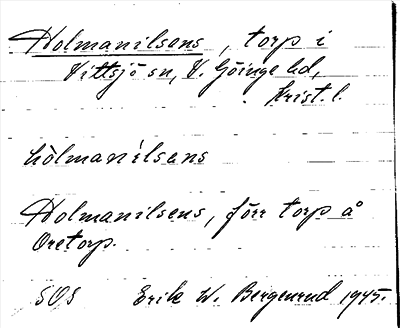 Holmanilsens, torp i
Vittsjö sn, V. Göinge hd,
Krist. l.
hòlmanílsens
Holmanilsens, förr torp å
Oretorp.
SOS Erik W. Bergenrud 1945.